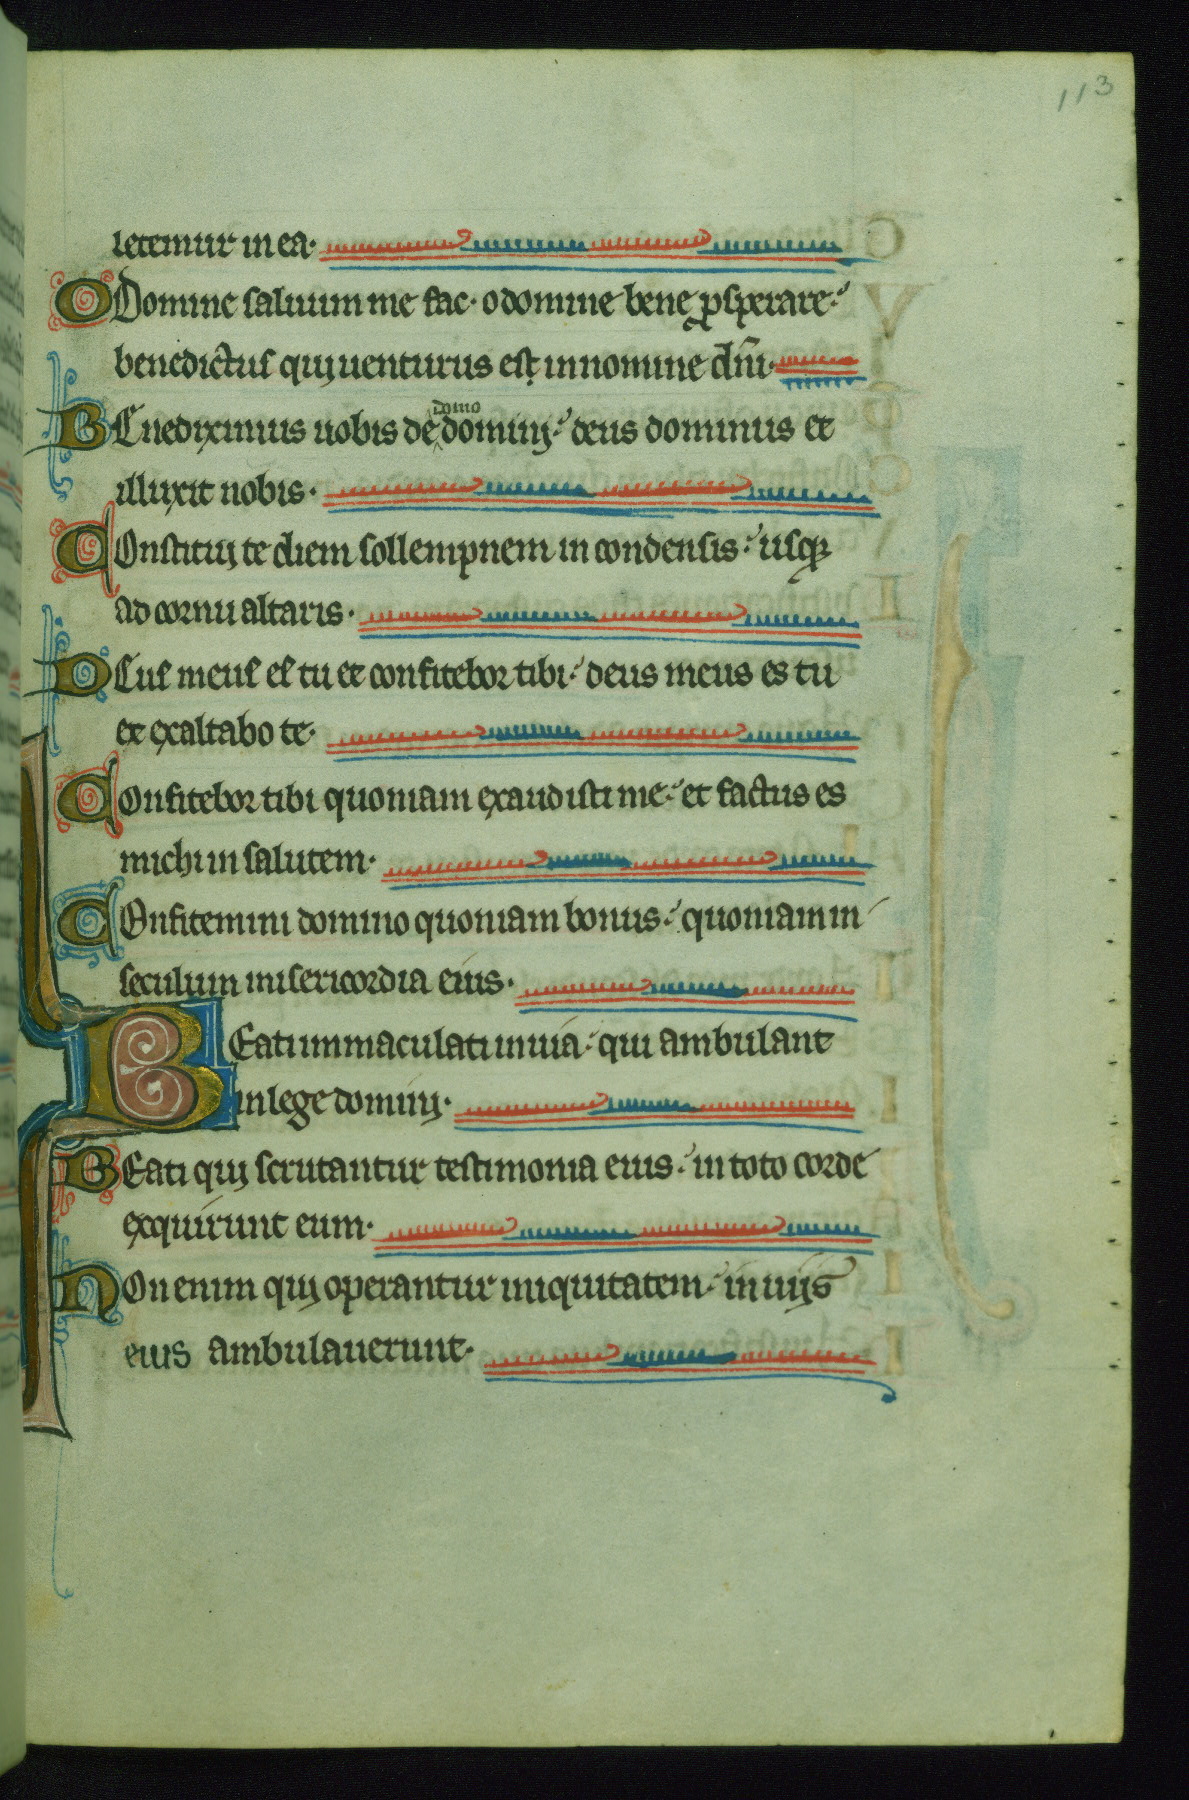 113
letemur in ea·
O Domine saluum me fac· o domine bene ꝓsperare·
benedictus qui uenturus est in nomine dn̄i·
BEnediximus uobis de domo domini· deus dominus et
illuxit nobis·
COnstitui te diem sollempnem in condensis· usqꝫ
ad cornu altaris·
DEus meus es tu et confitebor tibi· deus meus es tu
et exaltabo te·
COnfitebor tibi quoniam exaudisti me· et factus es
michi in salutem·
COnfitemini domino quoniam bonus· quoniam in
seculum misericordia eius·
BEati immaculati in uia· qui ambulant
in lege domini·
BEati qui scrutantur testimonia eius· in toto corde
exquirunt eum·
NOn enim qui operantur iniquitatem· in uiis
eius ambulauerunt·